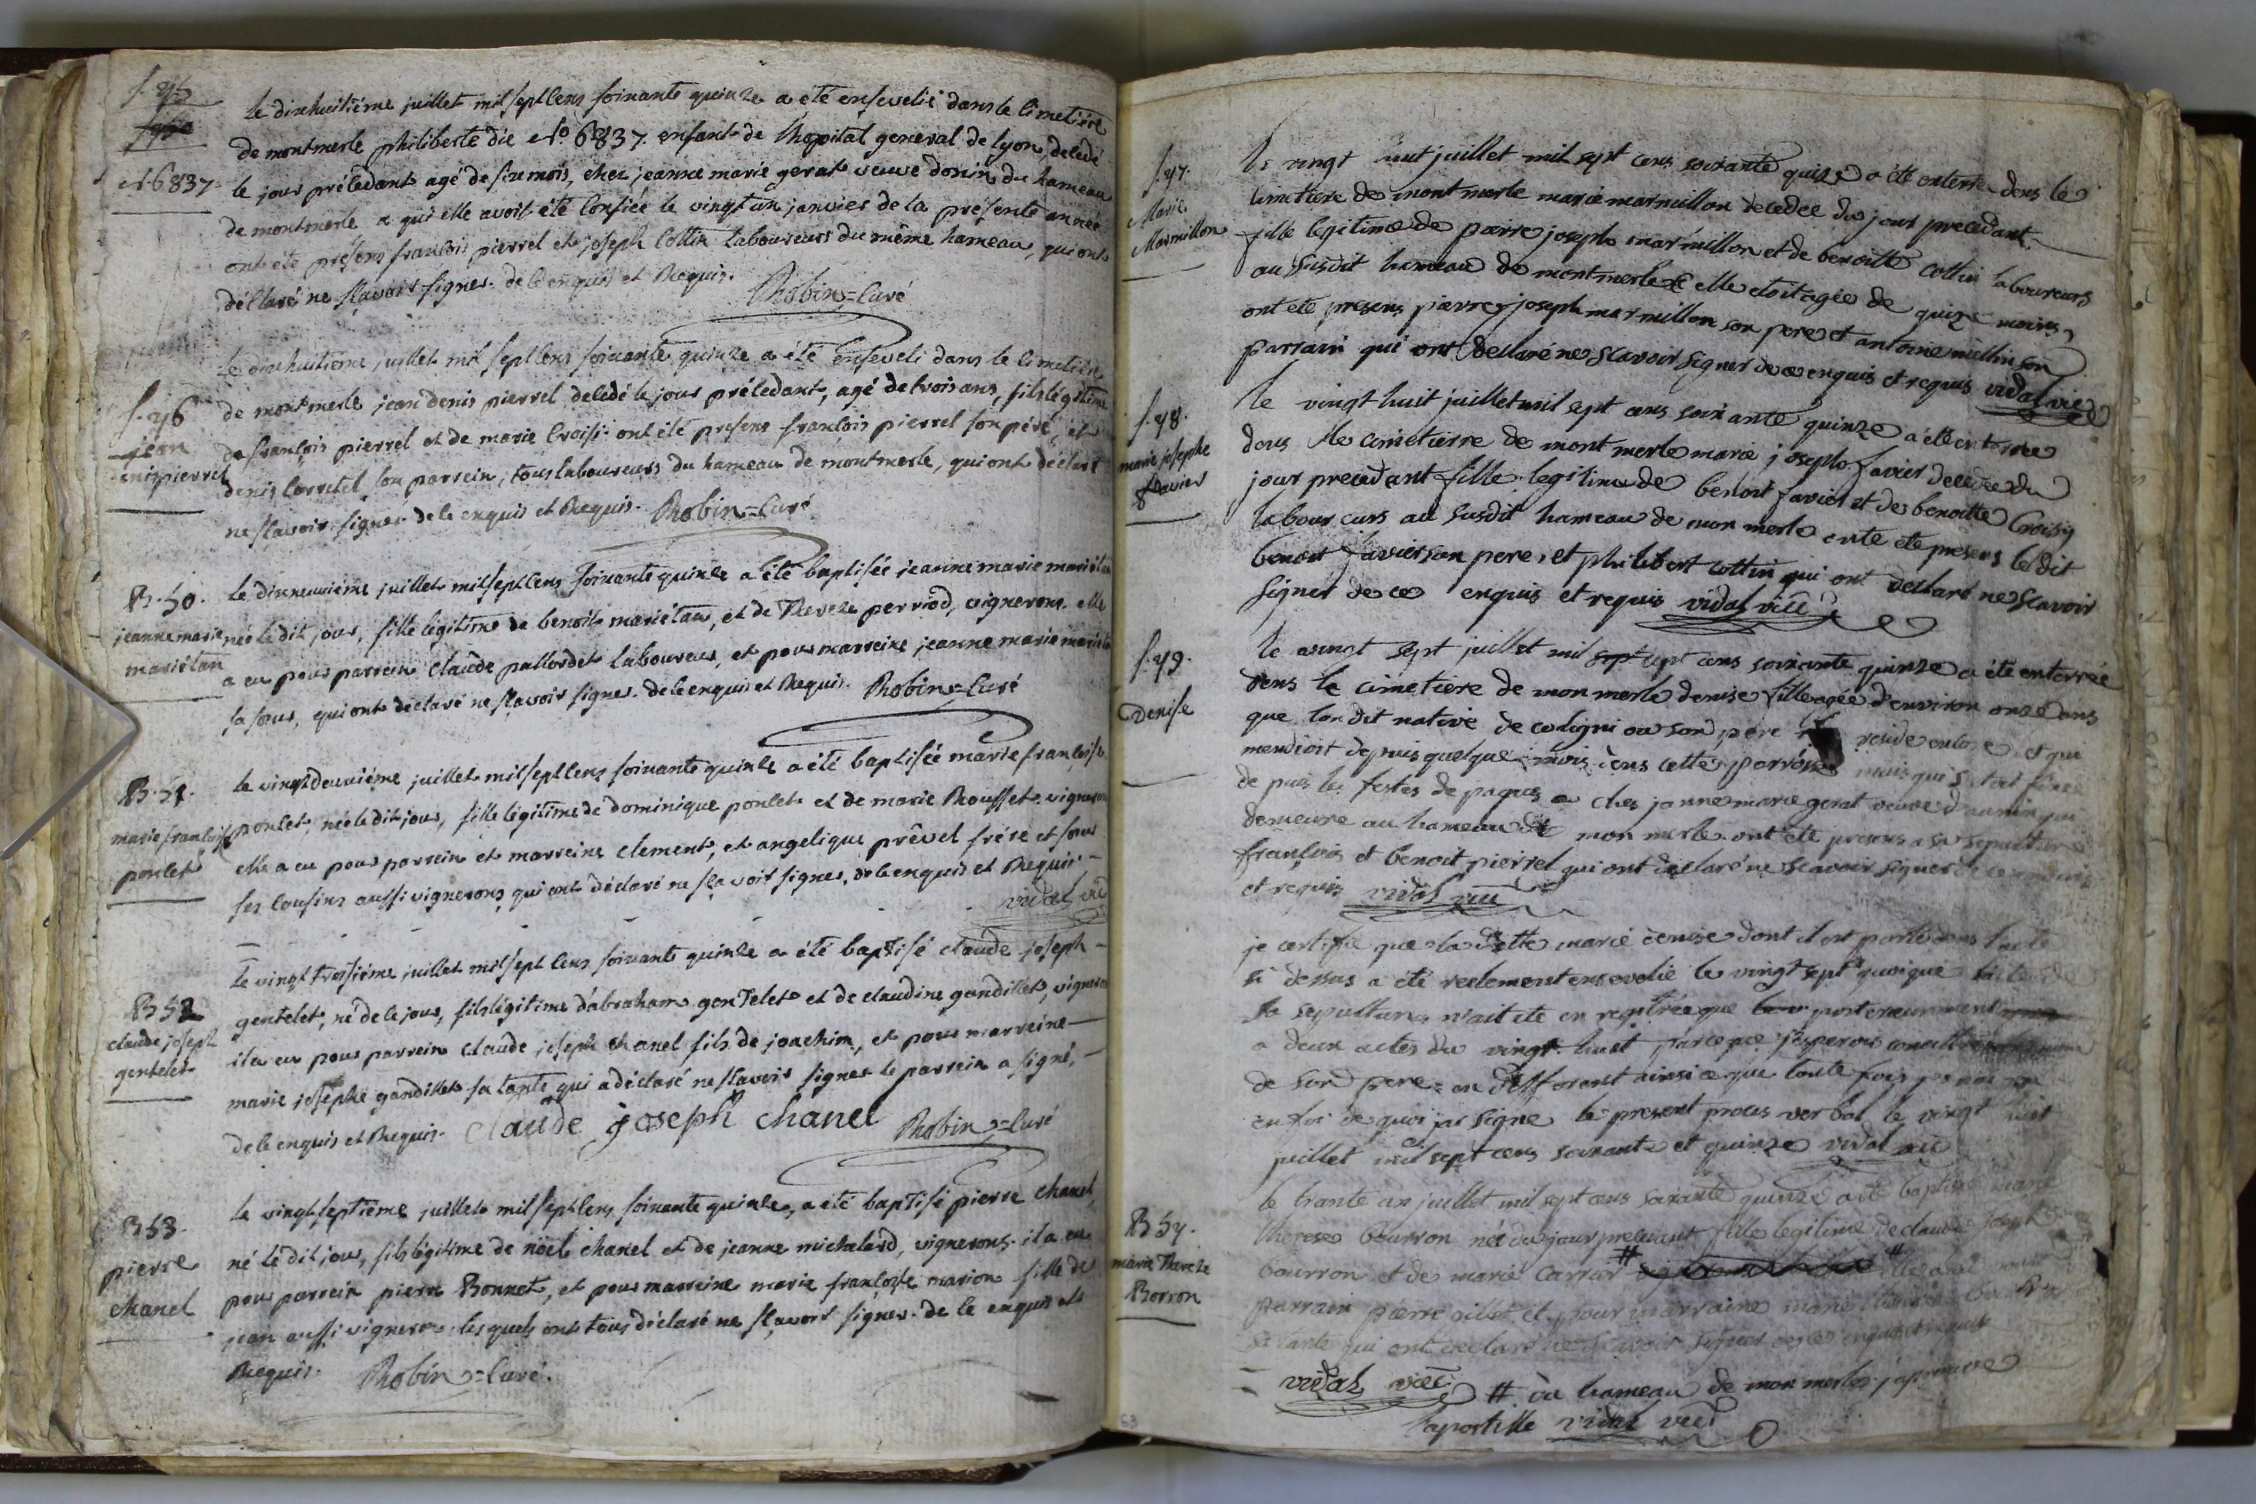 f. 45
N. 6837.
le dixhuitiéme juillet mil sept cens soixante quinze a été ensevelie dans le cimetiére
de montmerle philiberte die No. 6837. enfant de l'hopital general de lyon, decedé
le jour précedant agé de six mois, chez jeanne marie gerat veuve donin du hameau
de montmerle a qui elle avoit été confiée le vingt un janvier de la présente année
ont été présens françois pierrel et joseph cottin laboureurs du même hameau, qui ont
déclaré ne sçavoir signer. de ce enquis et Requis. Robin = curé
f. 46
jean
denis pierrel
le dixhuitiéme juillet mil sept cens soixante quinze a été enseveli dans le cimetiére
de montmerle jean denis pierrel decedé le jour précedant, agé de trois ans, fils légitime
de françois pierrel et de marie Croisi. ont été présens françois pierrel son pére, et
denis Corretel son parrein, tous laboureurs du hameau de montmerle, qui ont déclaré
ne sçavoir signer de ce enquis et Requis. Robin = curé
B. 50.
jeanne marie
mariétan
le dixneuviéme juillet mil sept cens soixante quinze a été baptisée jeanne marie mariétan
née le dit jour, fille légitime de benoît mariétan, et de Thereze perriod, vignerons. elle
a eu pour parrein Claude pallordet laboureur, et pour marreine jeanne marie mariétan
sa soeur, qui ont déclaré ne sçavoir signer. de ce enquis et Requis. Robin = curé
B. 51.
marie françoise
poulet
le vingtdeuxiéme juillet mil sept cens soixante quinze a été baptisée marie françoise
poulet, née le dit jour, fille légitime de dominique poulet et de marie Rousset vignerons
elle a eu pour parrein et marreine clement, et angelique prével frére et soeur
ses cousins aussi vignerons qui ont déclaré ne sçavoir signer, de ce enquis et Requis -
vidal vic
B 52
claude joseph
gentelet
le vingt troisiéme juillet mil sept cens soixante quinze a été baptisé claude joseph -
gentelet, né de ce jour, fils légitime d'abraham gentelet et de claudine gandillet, vignerons
il a eu pour parrein claude joseph chanel fils de joachim, et pour marreine
marie joséphe gandillet sa tante qui a déclaré ne sçavoir signer le parrein a signé, -
de ce enquis et Requis. claude joseph chanel Robin = curé
B 53.
pierre
chanel
le vingt septiéme juillet mil sept cens soixante quinze, a été baptisé pierre chanel,
né le dit jour, fils légitime de noël chanel et de jeanne michalard, vignerons. il a eu
pour parrein pierre Bonnet, et pour marreine marie françoise marion fille de
jean aussi vigneron. lesquels ont tous déclaré ne sçavoir signer. de ce enquis et
Requis. Robin = curé.
f. 47.
Marie
Marmillon
le vingt huit juillet mil sept cens soixante quize a été enterre dens le
cimetiere de mont merle marie marmillon decedee du jour precedant
fille legitime de pierre joseph marmillon et de benoitte cottin laboureurs
au susdit hameau de mont merle elle etoit agée de quize moins
ont ete presens pierre joseph marmillon son pere et antoine millin son
parrain qui ont declaré ne scavoir signer de ce enquis et requis vidal vic
f. 48.
marie josephe
favier
le vingt huit juillet mil sept cens soixante quinze a été enterree
dens le cimetierre de mont merle marie joseph favier decedee du
jour precedant fille legitime de benoit favier et de benoitte Croisy
laboureurs au susdit hameau de mon merle onte ete presens ledit
benoit favier son pere et philibert cottin qui ont declare ne scavoir
signer de ce enquis et requis vidal vic
f. 49.
Denise
le vingt sept juillet mil sept cens soixante quinze a été enterrée
dens le cimetiere de mon merle denise fille agée d'environ onze ans
que lon dit native de coligni ou son pere reside encore et qui
mendioit depuis quelque mois dens cette parroisse mais qui s'etoit fixée
de puis les festes de paques chez janne marie gerat veuve daunin qui
demeure au hameau de mon merle. ont été presens a sa sepulture
françois et benoit pierrel qui ont declaré ne scavoir signer de ce enquis
et requis vidal vic
je certifie que la ditte marie denise dont il est parlé dens l'acte
si dessus a été reelement ensevelie le vingt sept quoique
sa sepulture n'ait ete enregitrée que posterieurement
a deux actes du vingt huit parce que j'esperois conoitre
de son pere en differant ainsi ce que toute fois je n'ai pu
en foi de quoi jai signe le present proces verbal le vingt huit
juillet mil sept cens soixante et quinze vidal vic
B 54.
marie Thereze
Borron
le trante un juillet mil sept cens soixante quinze a été baptisée marie
therese bourron née du jour precedant fille legitime de claude joseph
bourron et de marie carrier # elle a eu pour
parrain pierre oillet et pour marraine marie
sa tante qui ont declaré ne scavoir signer de ce enquis et requis
vidal vic # du hameau de mon merle j'aprouve
lapostille vidal vic
63